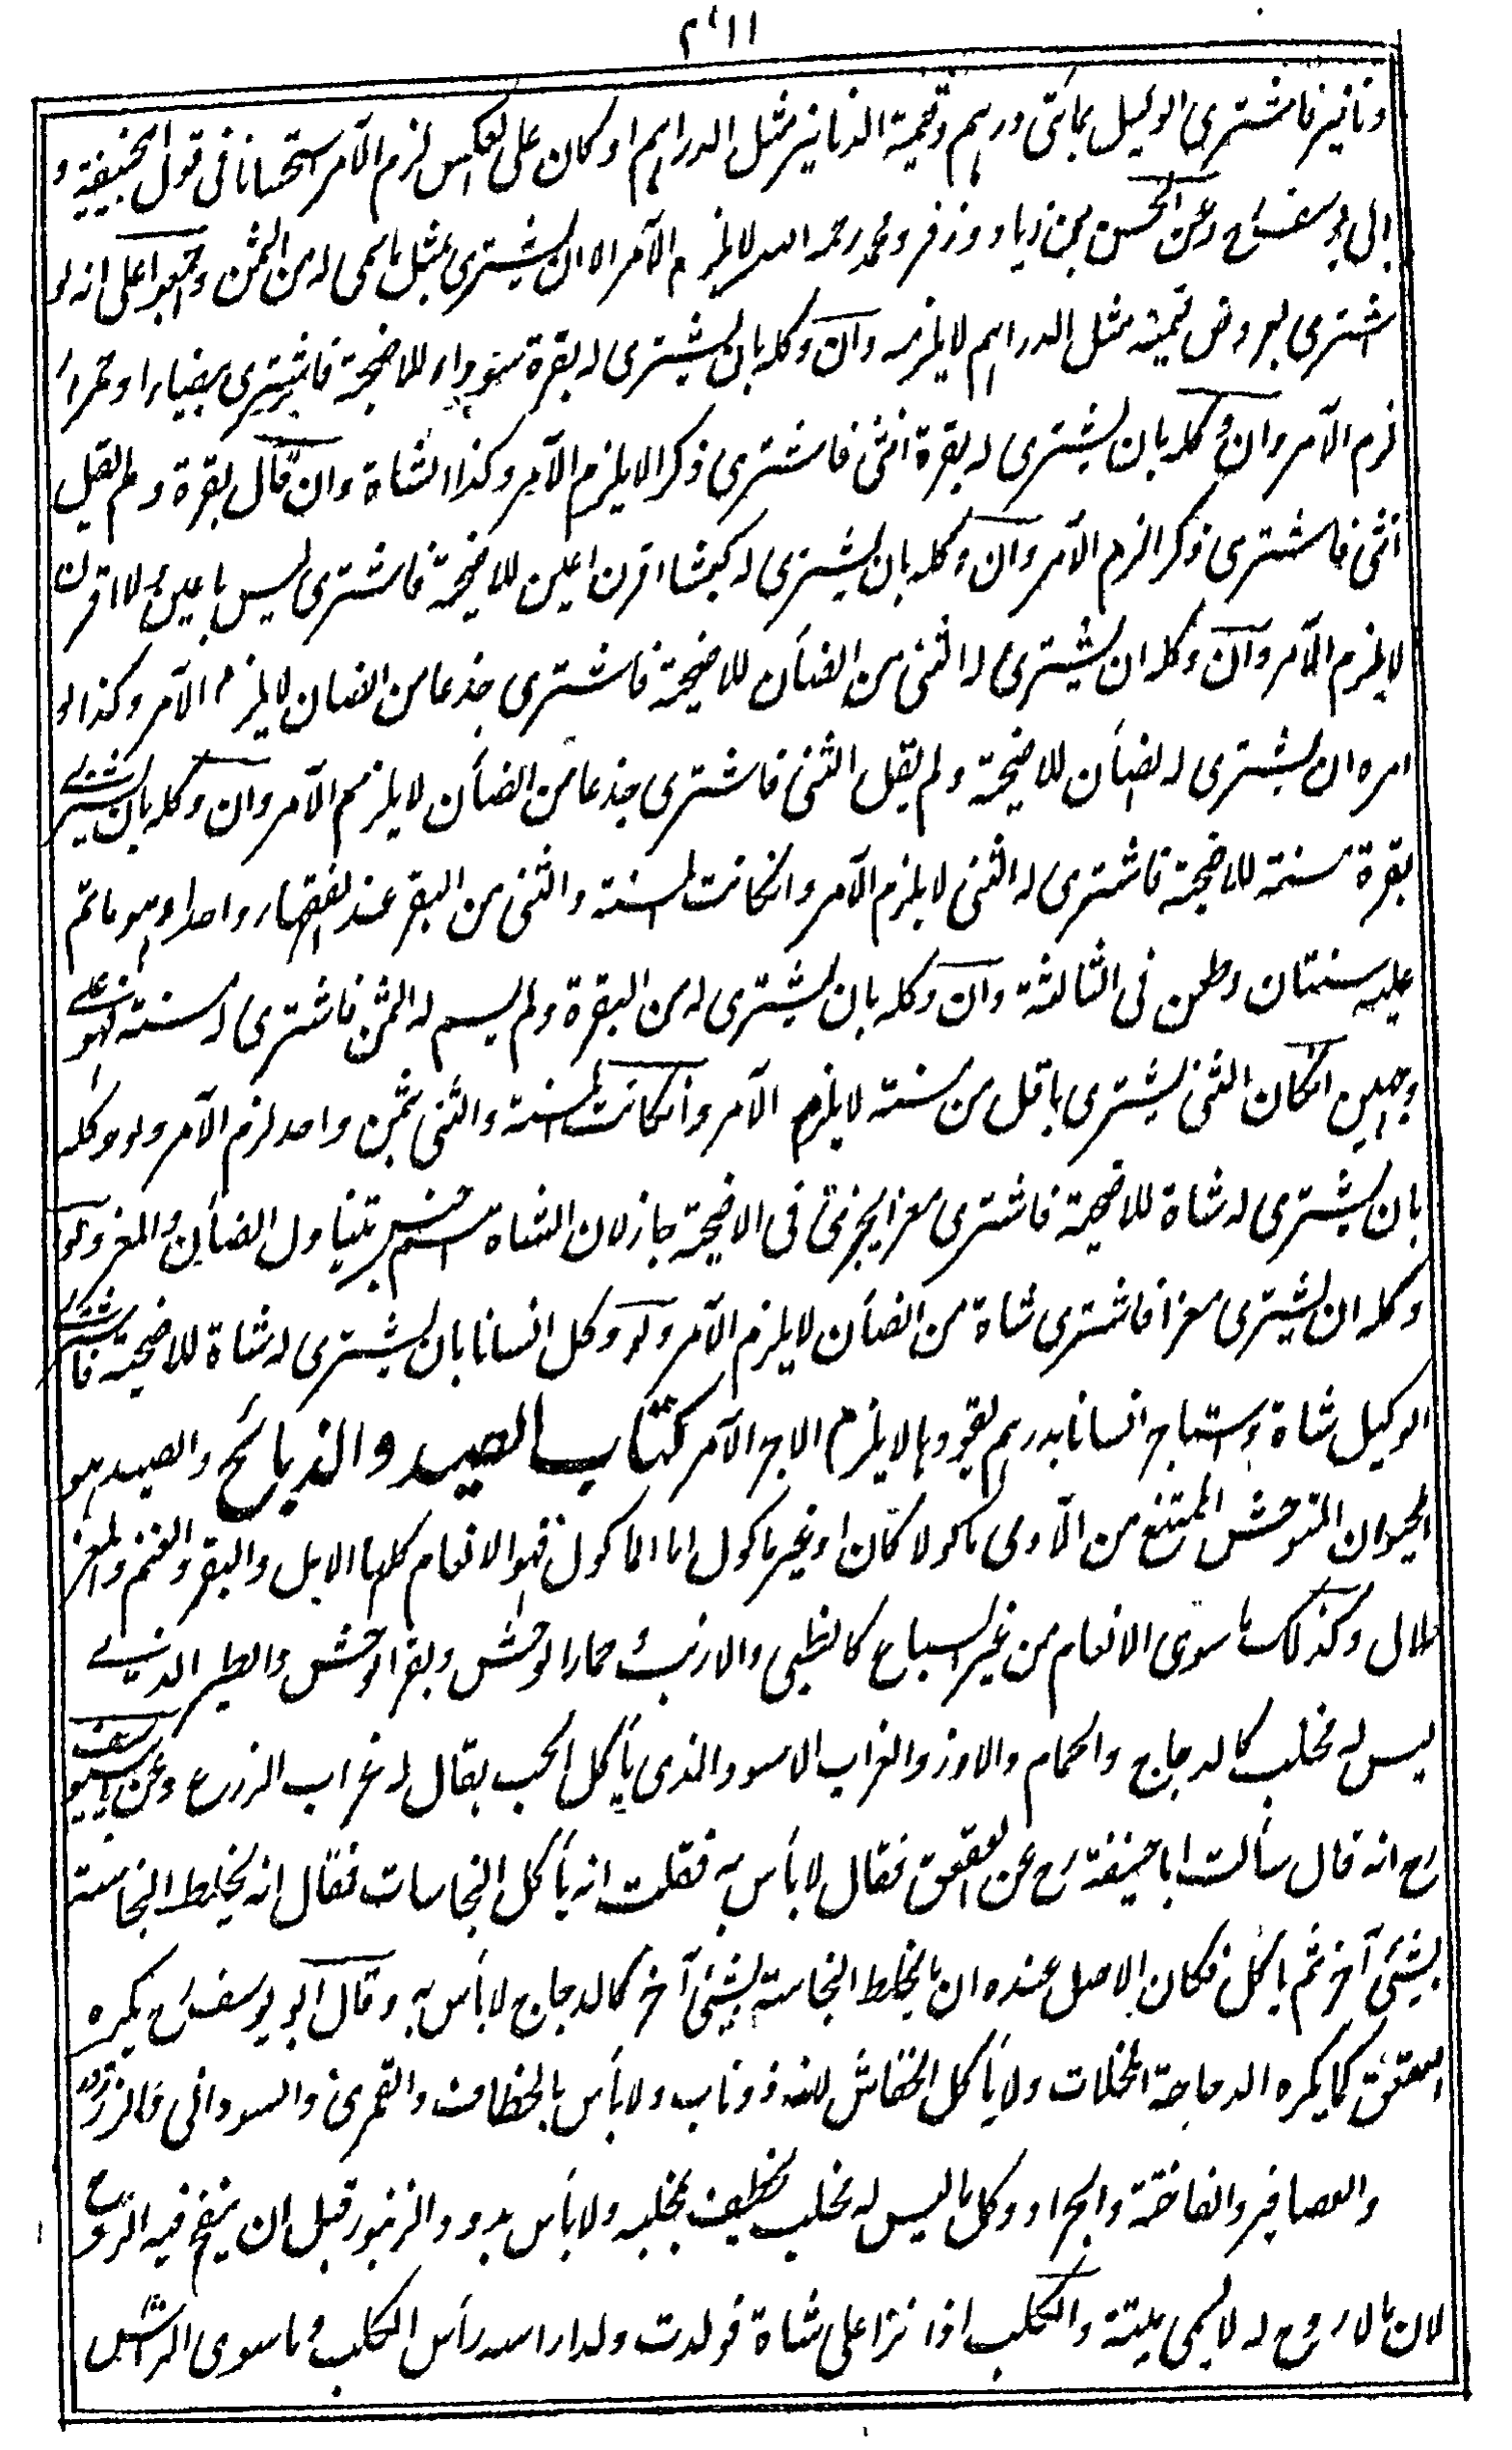 دنانير فاشترى الوكيل بمائتى درهم وقيمة الدنانير مثل الدراهم او كان على العكس لزم الآمر استحسانا فى قول ابيحنيفة و
ابى يوسف رح وعن الحسن بن زياد و زفر ومحمد رحمه الله لا يلزم الآمر الا ان يشترى بمثل ما سمى له من الثمن واجمعوا على انه لو
اشترى بعروض قيمته مثل الدراهم لا يلزمه وان وكله بان يشترى له بقرة سوداء للاضحية فاشترى بيضاء او حمراء
لزم الآمر وان وكله بان يشترى له بقرة انثى فاشترى ذكرا لا يلزم الآمر وكذا الشاة وان قال بقرة ولم يقل
انثى فاشترى ذكرا لزم الآمر وان وكله بان يشترى له كبشا اقرن اعين للاضحية فاشترى ليس باعين ولا اقرن
لا يلزم الآمر وان وكله ان يشترى له الثنى من الضأن للاضحية فاشترى جذعا من الضان لا يلزم الآمر وكذا لو
امره ان يشترى له الضأن للاضحية ولم يقل الثنى فاشترى جذعا من الضأن لا يلزم الآمر وان وكله بان يشترى
بقرة مسنة للاضحية فاشترى له الثنى لا يلزم الآمر وانكانت المسنة والثنى من البقر عند الفقهاء واحدا وهو ما تم
عليه سنتان وطعن فى الثالثة وان وكله بان يشترى له من البقرة ولم يسم له الثمن فاشترى له مسنة فهو على
وجهين انكان الثنى يشترى باقل من مسنة لا يلزم الآمر وانكانت المسنة والثنى بثمن واحد لزم الآمر ولو وكله
بان يشترى له شاة للاضحية فاشترى معزا يجزئ فى الاضحية جاز لان الشاة اسم جنس يتناول الضأن والمعز ولو
وكله ان يشترى معزا فاشترى شاة من الضأن لا يلزم الآمر ولو وكل انسانا بان يشترى له شاة للاضحية فاشترى
الوكيل شاة واستاجر انسانا بدرهم يقودها لا يلزم الاجر الآمر كتاب الصيد والذبائح والصيد هو
الحيوان المتوحش الممتنع من الآدمى ماكولا كان او غير ماكول اما الماكول فهو الانعام كلها الابل والبقر والغنم والمعز
حلال وكذلك ما سوى الانعام من غير السباع كالظبى والارنب وحمار الوحش وبقر الوحش والطير الذى
ليس له مخلب كالدجاج والحمام والاوز والغراب الاسود الذى يأكل الحب يقال له غراب الزرع وعن ابى يوسف
رح انه قال سألت ابا حنيفة رح عن العقعق فقال لا بأس به فقلت انه يأكل النجاسات فقال انه يخلط النجاسة
بشئ آخر ثم يأكل فكان الاصل عنده ان ما يخلط النجاسة بشئ آخر كالدجاج لا بأس به وقال ابو يوسف رح يكره
العقعق كما يكره الدجاجة المخلات ولا يأكل الخفاش لانه ذو ناب ولا بأس بالخطاف والقمرى والسودانى والزرزور
والعصافير والفاختة والجراد وكل ما ليس له مخلب يخطف بمخلبه ولا بأس بدود الزنبور قبل ان ينفخ فيه الروح
لان ما لا روح له لا يسمى ميتة والكلب اذا نزا على شاة فولدت ولدا راسه رأس الكلب وما سوى الرأس